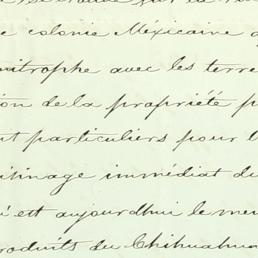 colonie Méxicaine
avec les terre
ion de la propriété p
t particuliers pour l
immédiat du
i est aujourd'hui le me
roduits du Chihuahua